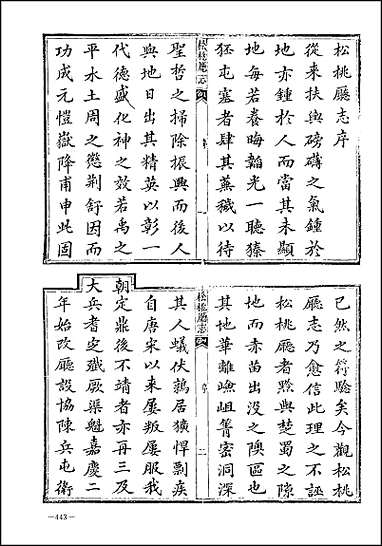 松桃廳志序
從來扶輿磅礴之氣鍾於
地亦鍾於人而當其未顯
地每若養晦韜光一聽獉
狉屯塞者肆其蕪穢以待
松桃廳志
序
一
聖哲之掃除振興而後人
與地日出其精英以彰一
代德盛化神之效若禹之
平水土周之懲荆舒因而
功成元愷嶽降甫申此固
已然之符驗矣今觀松桃
廳志乃愈信此理之不誣
松桃廳者黔與楚蜀之隙
地而赤苗出没之隩區也
其地華離嶮岨箐密洞深
松桃廳志
序
二
其人蟻伏鶉居獷悍剽疾
自唐宋以来屢叛屢服我
朝定鼎後不靖者亦再三及
大兵耆定殱厥渠魁嘉慶二
年始改廳設協陳兵屯衛
—443—